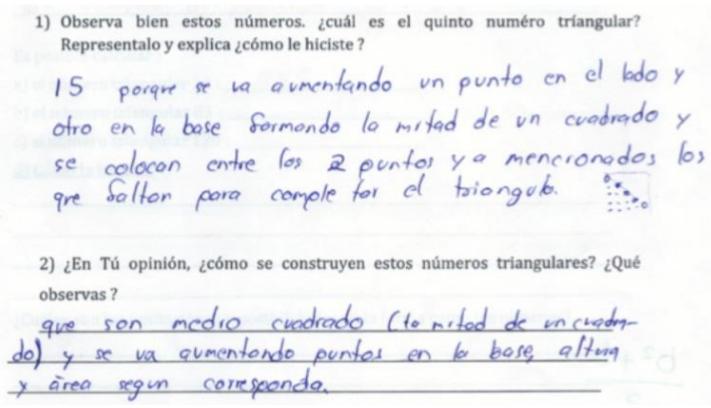 1) Observa bien estos números. ¿cuál es el quinto numéro tríangular?
Representalo y explica ¿cómo le hiciste ?
15 porque se va aumentando un punto en el lado y
otro en la base formando la mitad de un cuadrado y
se colocan entre los 2 puntos ya mencionados los
que faltan para completar el triangulo.
2) ¿En Tú opinión, ¿cómo se construyen estos números triangulares? ¿Qué
observas ?
que son medio cuadrado (la mitad de un cuadra-
do) y se va aumentando puntos en la base, altura
y área segun corresponda.